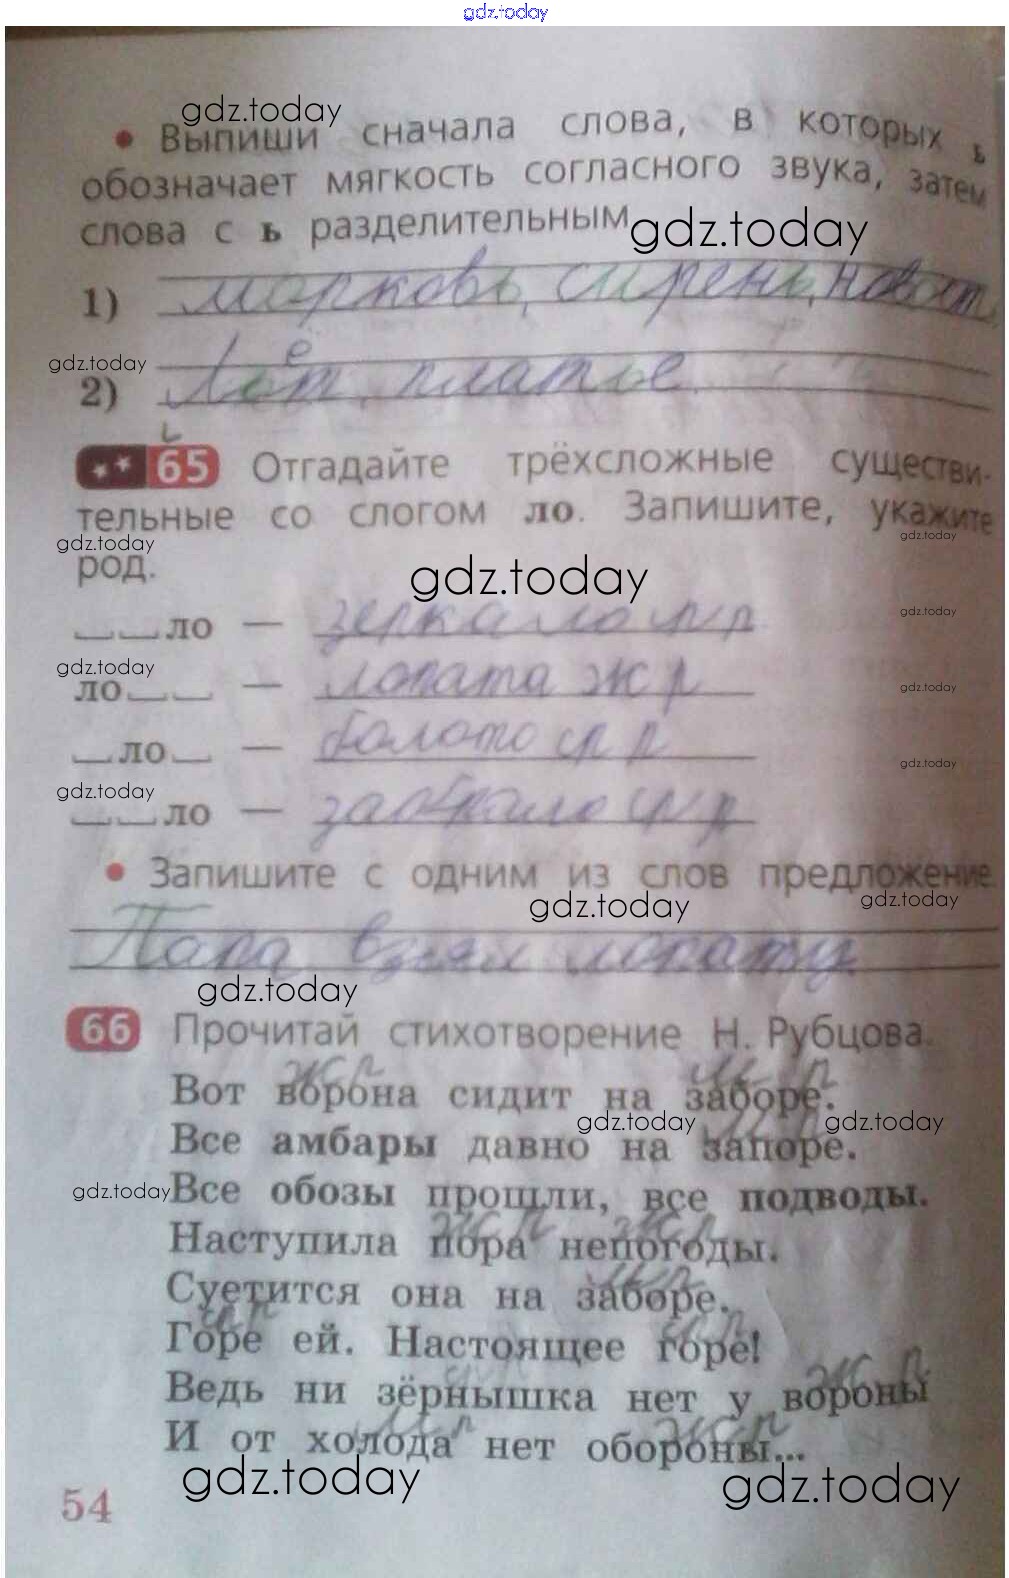 gdz.today
gdz.today
• Выпиши сначала слова, в которых ь
обозначает мягкость согласного звука, затем
слова с ь разделительным
gdz.today
1) морковь, сирень,
gdz.today
2) Льёт, платье
65 Отгадайте трёхсложные существи-
тельные со слогом ло. Запишите, укажите
gdz.today gdz.today
род.
gdz.today
__ __ ло — зеркало ср р
gdz.today
gdz.today
ло __ __ — лопата ж р
gdz.today
__ ло __ — болото ср р
gdz.today
gdz.today
__ __ ло — забрало ср р
• Запишите с одним из слов предложение.
gdz.today gdz.today
Папа взял лопату
gdz.today
66 Прочитай стихотворение Н. Рубцова.
ж р м р
Вот ворона сидит на заборе.
gdz.today gdz.today
м р
Все амбары давно на запоре.
gdz.today
Все обозы прошли, все подводы.
ж р ж р
Наступила пора непогоды.
м р
Суетится она на заборе.
ср р ср р
Горе ей. Настоящее горе!
ср р ж р
Ведь ни зёрнышка нет у вороны
м р ж р
И от холода нет обороны...
gdz.today gdz.today
54